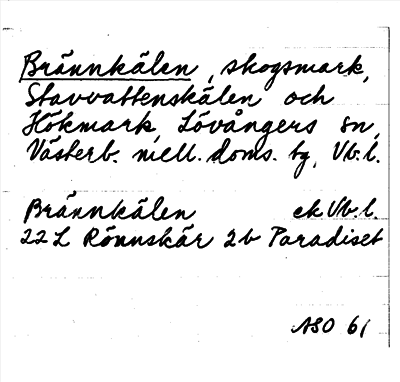 Brännkälen, skogsmark,
Stavvattenskälen och
Hökmark, Lövångers sn,
Västerb. mell. doms. tg, Vb.l.
Brännkälen ek Vb.l.
22 L Rönnskär 2b Paradiset
ASO 61